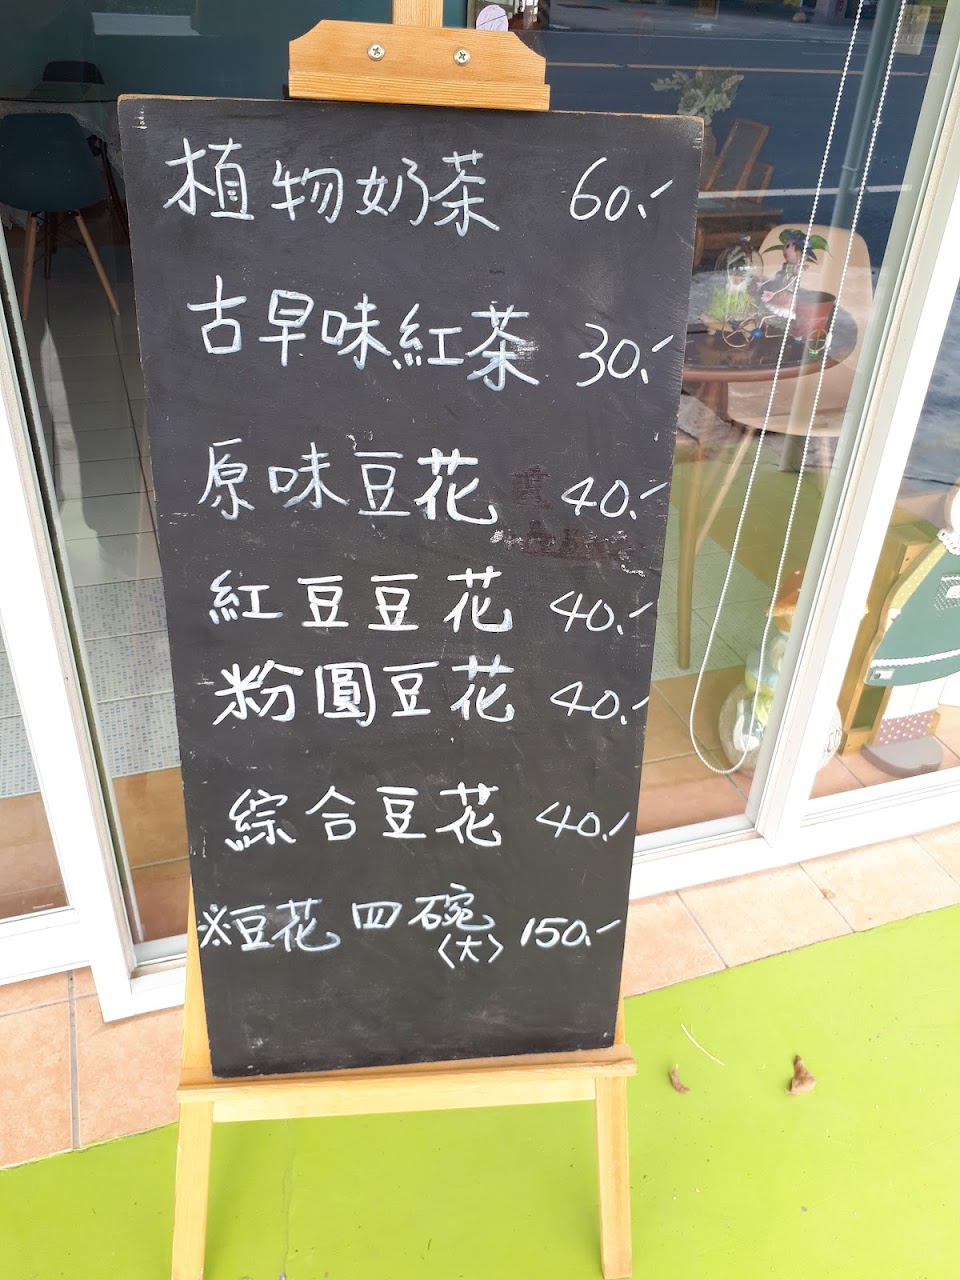 植物奶茶 60.-
古早味紅茶 30.-
原味豆花 40.-
紅豆豆花 40.-
粉圓豆花 40.-
綜合豆花 40.-
※豆花四碗 150.-
〈大〉